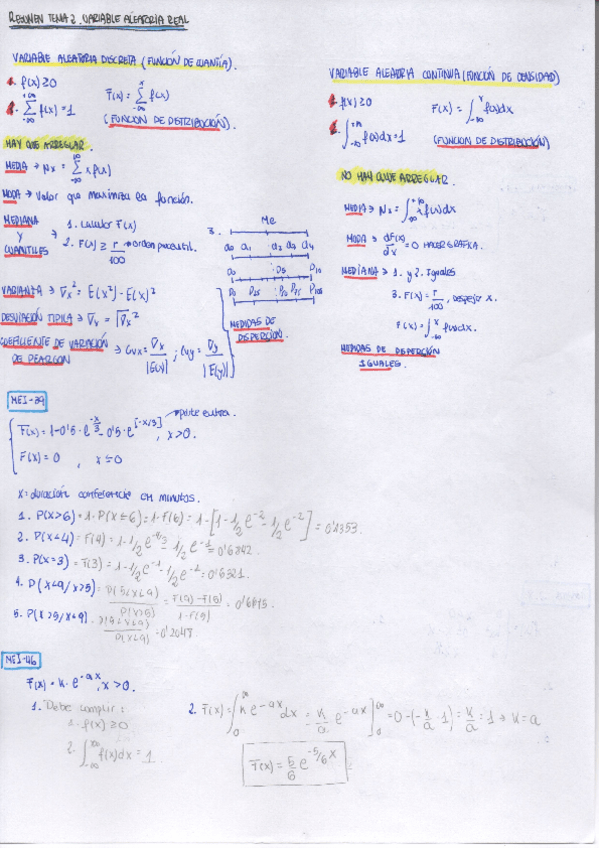 RESUMEN TEMA 2. VARIABLE ALEATORIA REAL
VARIABLE ALEATORIA DISCRETA (FUNCIÓN DE CUANTÍA).
1. f(x) ≥ 0
2. Σ_{-∞}^{+∞} f(x) = 1
F(x) = Σ_{-∞}^{x} f(x)
(FUNCIÓN DE DISTRIBUCIÓN).
HAY QUE ARREGLAR.
MEDIA → Nx = Σ_{-∞}^{+∞} x f(x)
MODA → Valor que maximiza la función.
MEDIANA Y CUANTILES → 1. Calcular F(x)
2. F(x) ≥ r/100 → orden porcentil.
3.
Me
a0 a1 a2 a3 a4
D0 D5 D10
P0 P25 P50 P75 P100
VARIANZA → ∇x² = E(x²) - E(x)²
DESVIACIÓN TÍPICA → ∇x = √∇x²
COEFICIENTE DE VARIACIÓN DE PEARSON → CVx = ∇x/|E(x)| ; CVy = ∇y/|E(y)|
MEDIDAS DE DISPERCIÓN.
VARIABLE ALEATORIA CONTINUA (FUNCIÓN DE DENSIDAD)
1. f(x) ≥ 0
2. ∫_{-∞}^{+∞} f(x)dx = 1
F(x) = ∫_{-∞}^{x} f(x)dx
(FUNCION DE DISTRIBUCIÓN)
NO HAY QUE ARREGLAR.
MEDIA → Nx = ∫_{-∞}^{+∞} x f(x)dx
MODA → dF(x)/dx = 0 HACER GRÁFICA.
MEDIANA → 1. y 2. Iguales
3. F(x) = r/100, despejar x.
F(x) = ∫_{-∞}^{x} f(x)dx.
MEDIDAS DE DISPERCIÓN IGUALES.
MEI-39
F(x) = 1 - 0'5 · e^{-x/3} - 0'5 · e^{[-x/3]}, x > 0. → parte entera.
F(x) = 0 , x ≤ 0
X: duración conferencia en minutos.
1. P(x>6) = 1 - P(x≤6) = 1 - F(6) = 1 - [1 - 1/2 e^{-2} - 1/2 e^{-2}] = 0'1353.
2. P(x<4) = F(4) = 1 - 1/2 e^{-4/3} - 1/2 e^{-1} = 0'6842.
3. P(x=3) = F(3) = 1 - 1/2 e^{-1} - 1/2 e^{-1} = 0'6321.
4. P(x<9/x>5) = P(5<x<9)/P(x>5) = F(9)-F(5)/1-F(5) = 0'6815.
5. P(x>5/x<9) = P(5<x<9)/P(x<9) = 0'2048.
MEI-46
F(x) = K · e^{-ax}, x > 0.
1. Debe cumplir:
1. f(x) ≥ 0
2. ∫_{-∞}^{+∞} f(x)dx = 1
2. F(x) = ∫_{0}^{∞} K e^{-ax} dx = -K/a e^{-ax}]_{0}^{∞} = 0 - (-K/a · 1) = K/a = 1 → K = a
F(x) = 5/6 e^{-5/6 x}